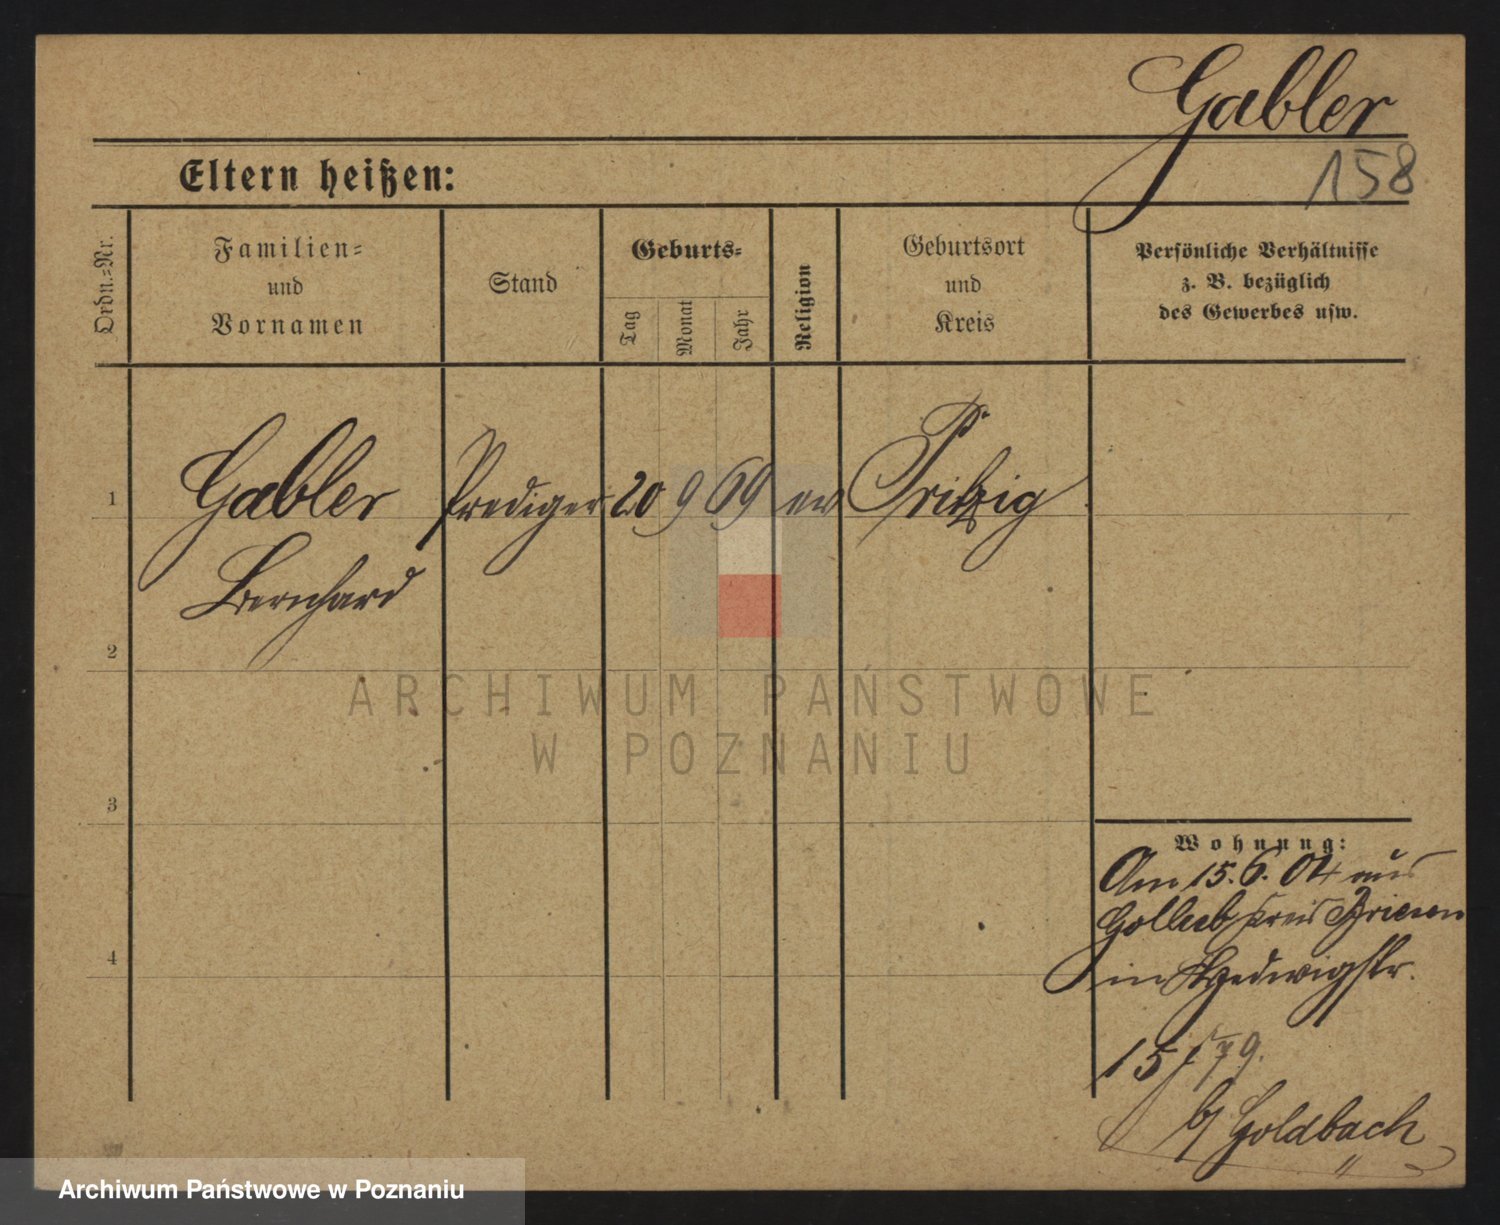 Gabler
158
Eltern heißen:
Ordn.=Nr.
Familien=
und
Vornamen
Stand
Geburts=
Tag
Monat
Jahr
Religion
Geburtsort
und
Kreis
Persönliche Verhältnisse
z. B. bezüglich
des Gewerbes usw.
1
Gabler Prediger 20 9 69 ev Pritzig
Bernhard
2
ARCHIWUM PAŃSTWOWE
W POZNANIU
3
Wohnung:
Am 15. 6. 04 aus
Gollub Kreis Briesen
4
in Hedwigstr.
15
b/ Goldbach
Archiwum Państwowe w Poznaniu